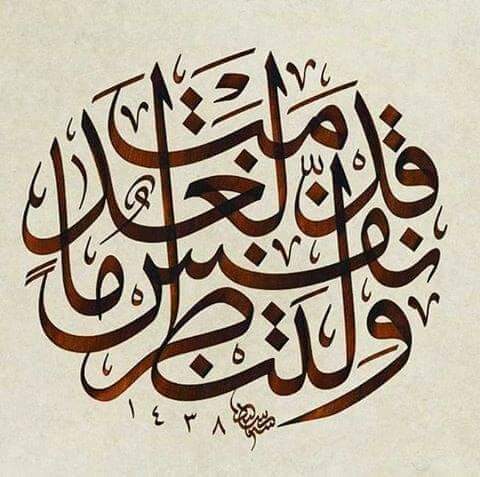 ولتنظر نفس ما قدمت لغد
١٤٣٨